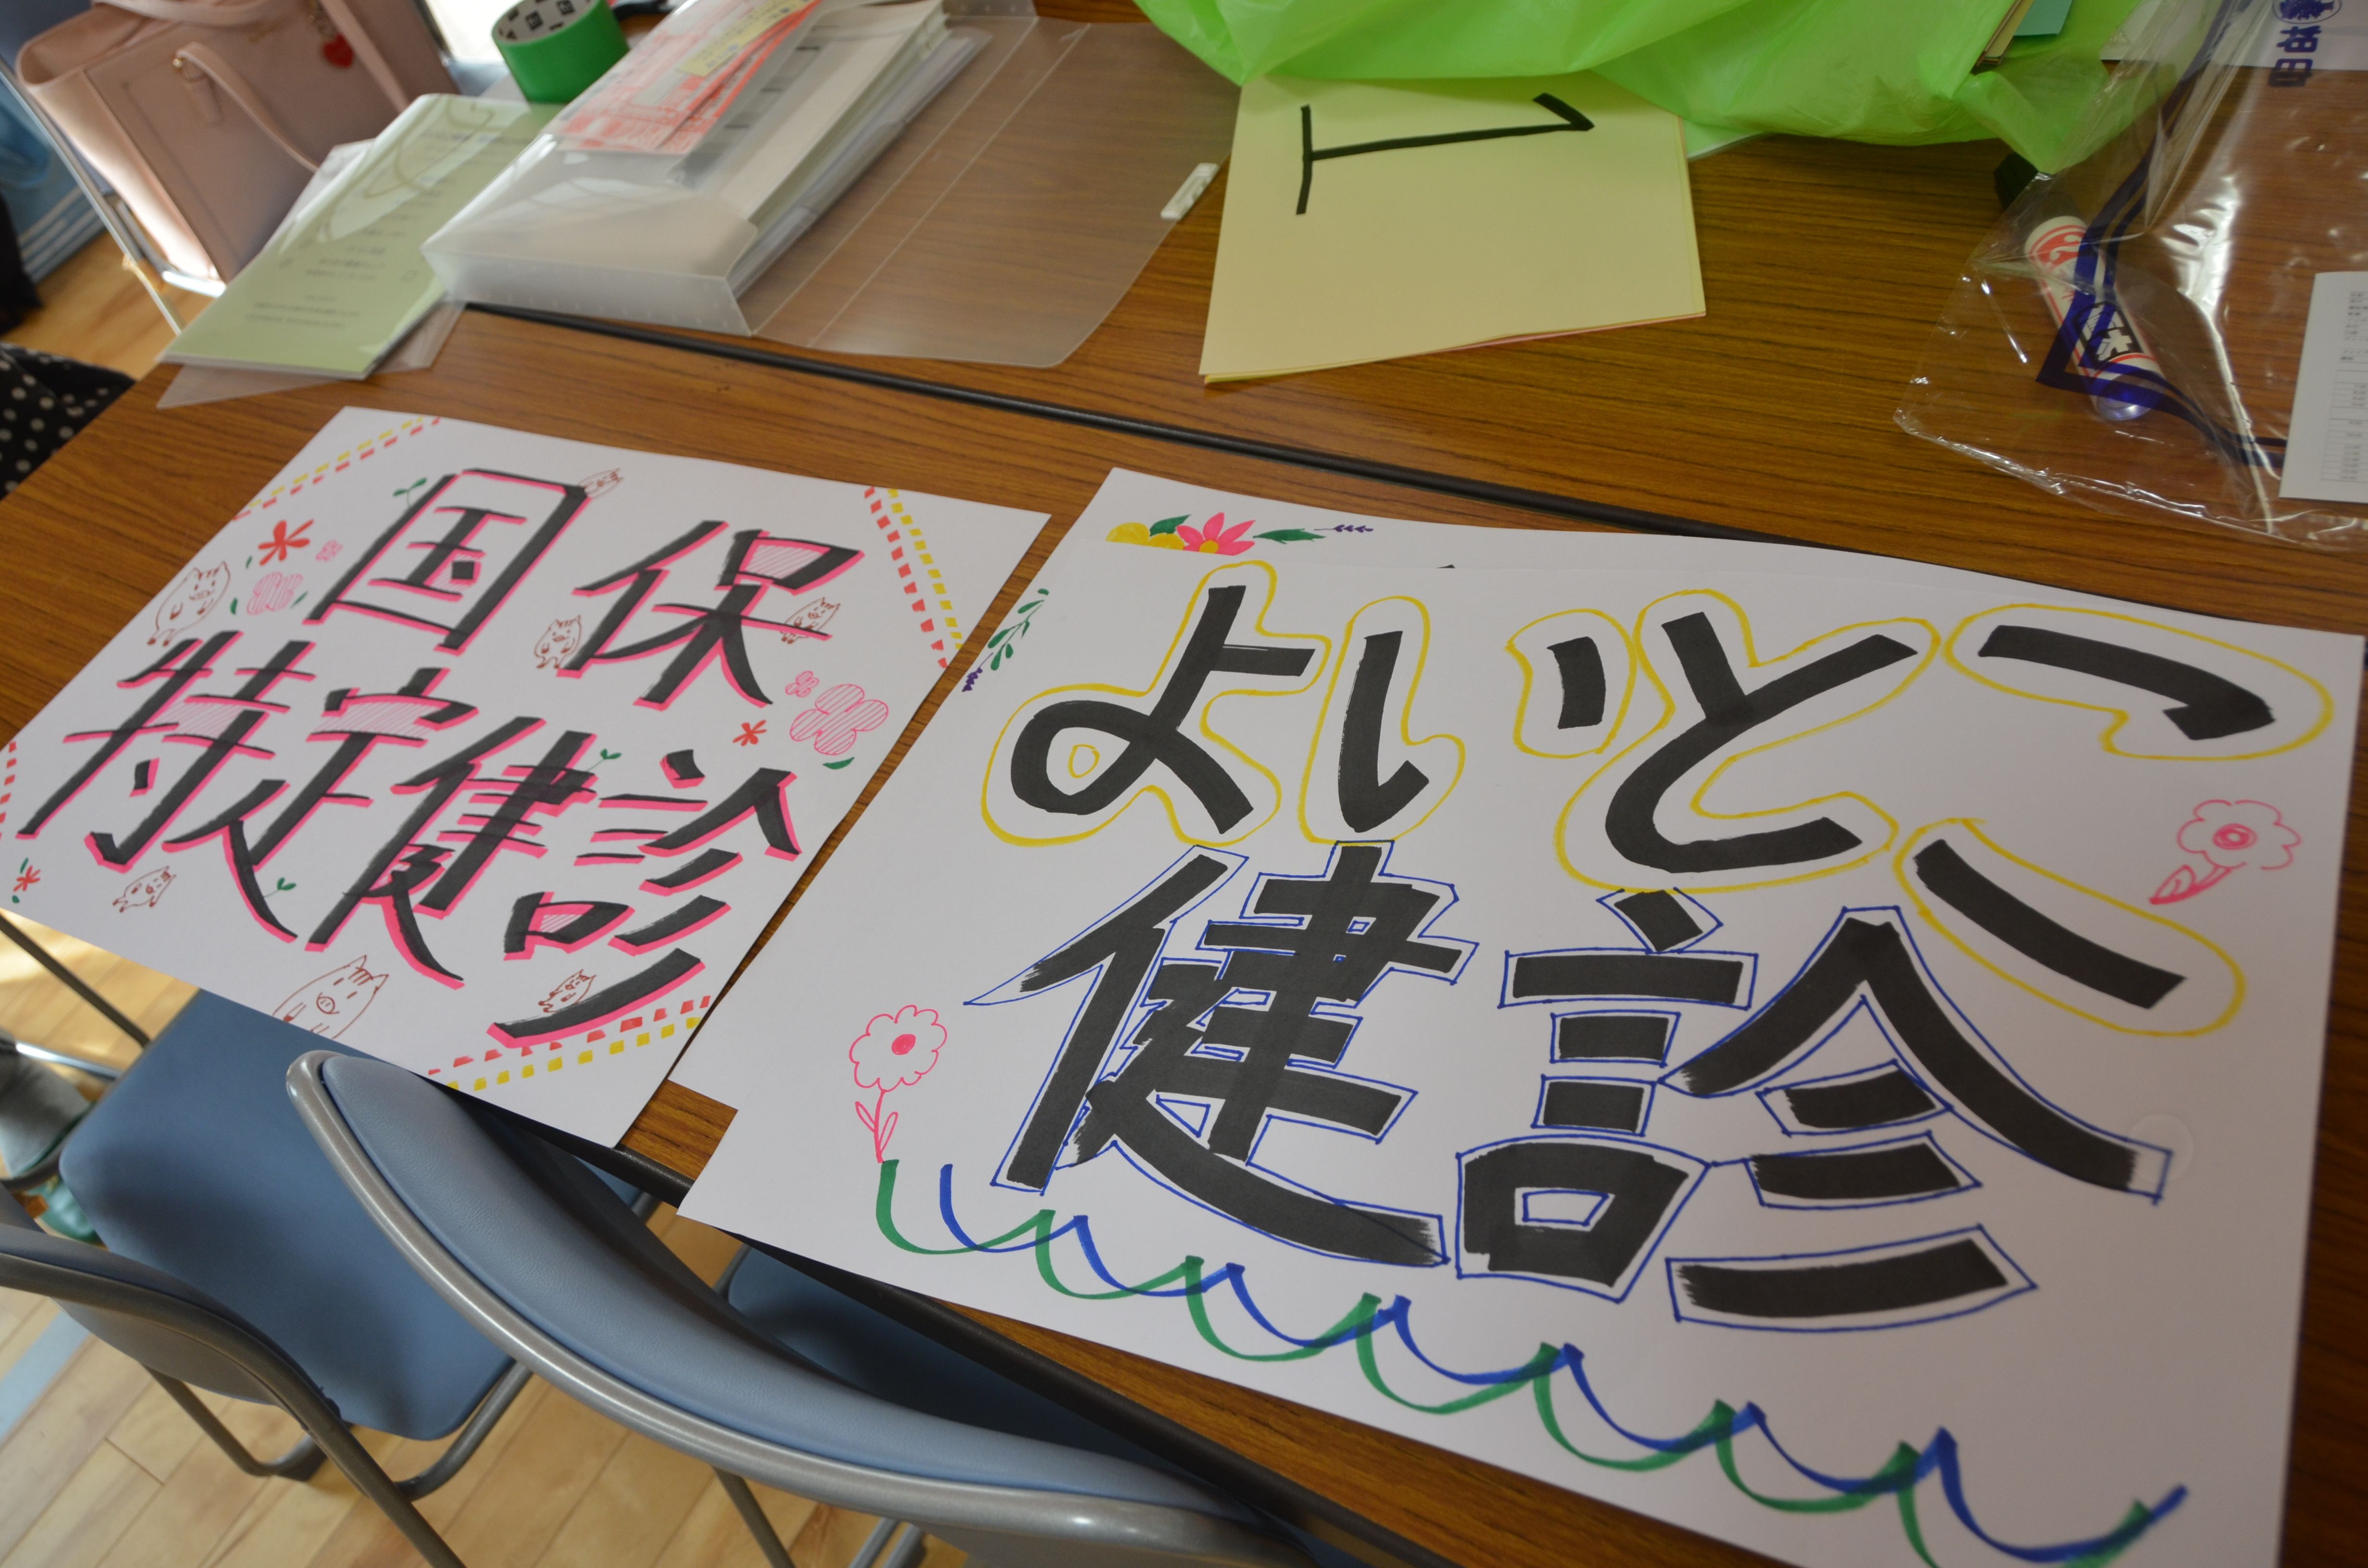 国保
特定健診
よいとこ
健診
1